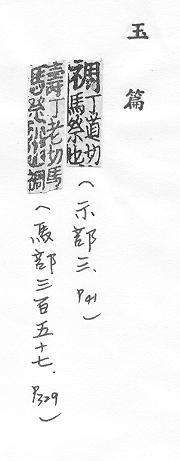 玉篇
禂丁道切馬祭也(示部三. P41)
丁老切馬祭禂(馬部三百五十七. P329)